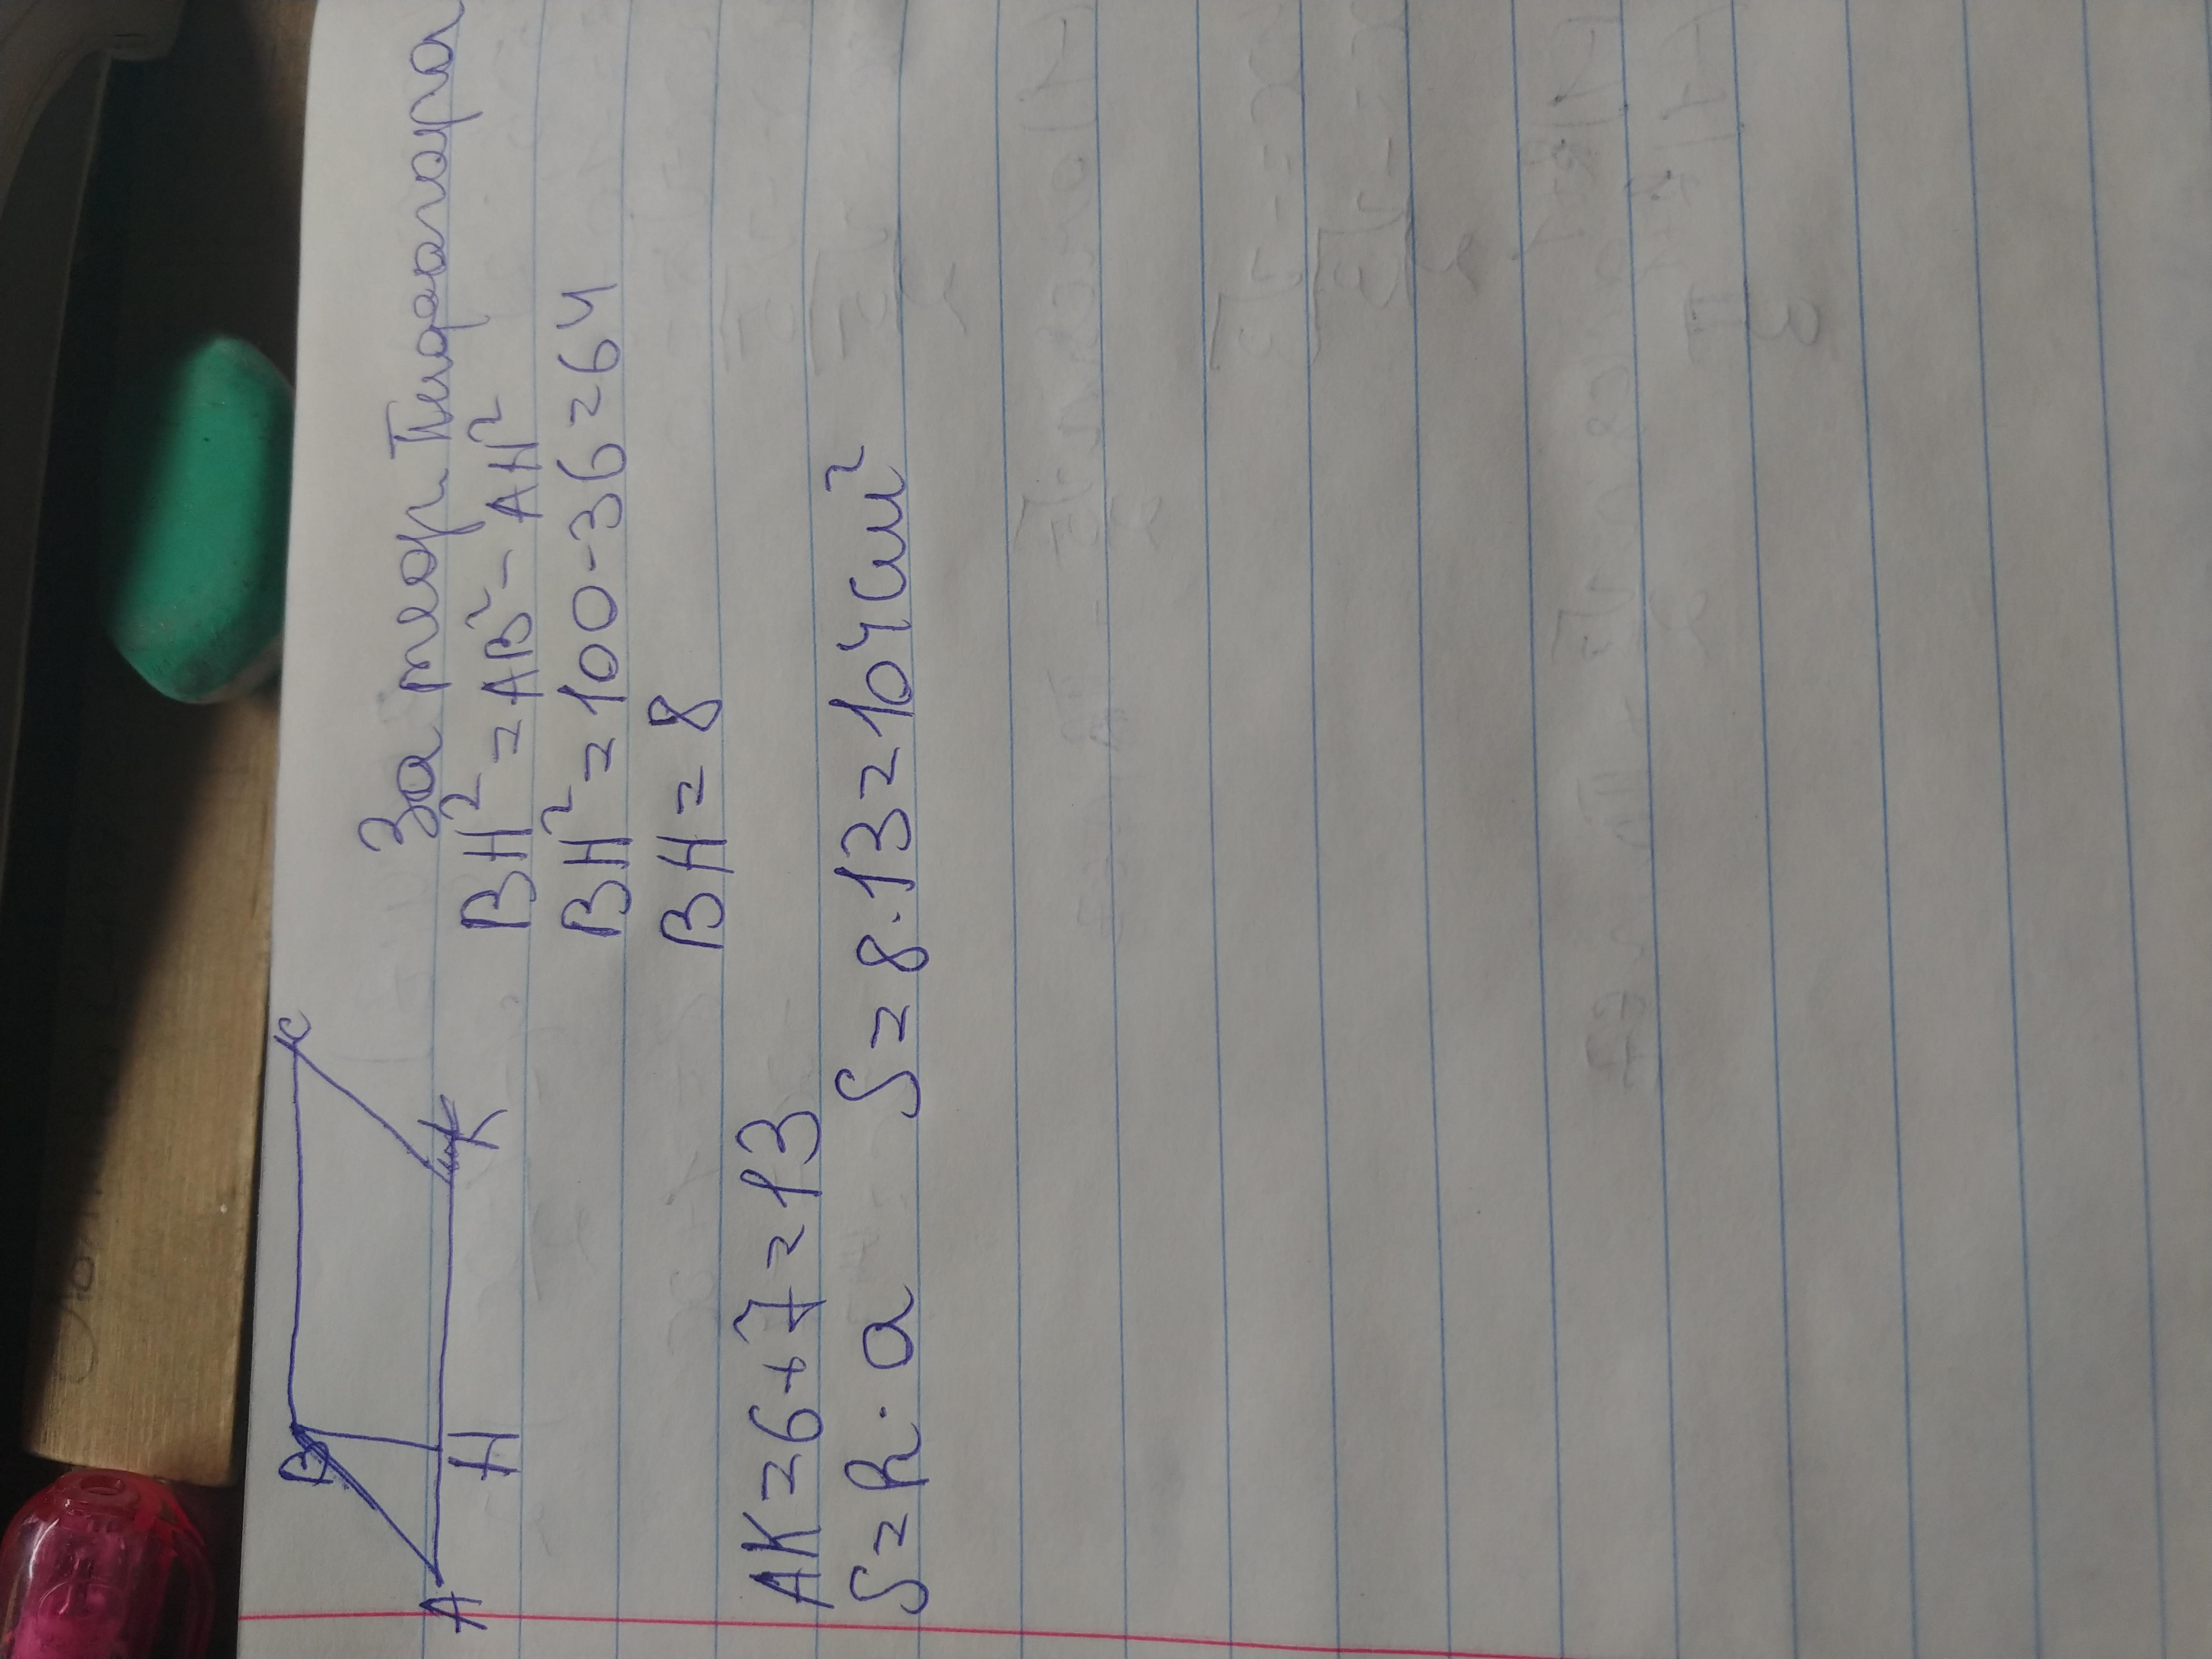 B C
A H K
За теор. Пифагора
BH² = AB² - AH²
BH² = 100 - 36 = 64
BH = 8
AK = 6 + 7 = 13
S = h · a S = 8 · 13 = 104 см²